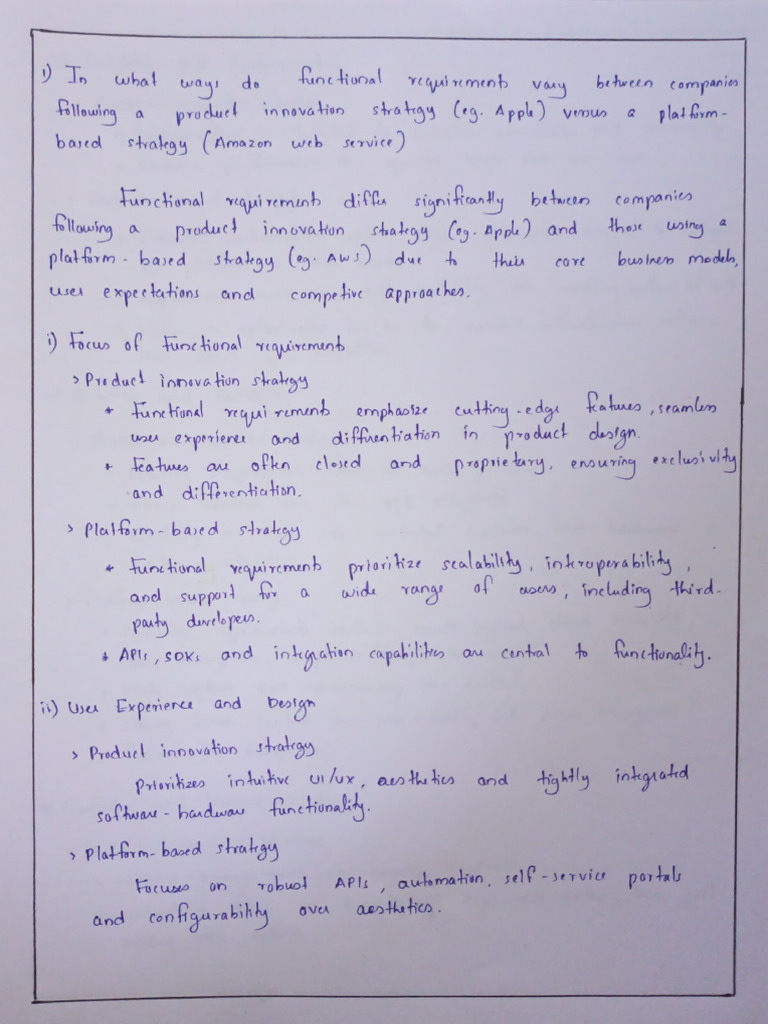 1) In what ways do functional requirements vary between companies
following a product innovation strategy (eg. Apple) versus a platform-
based strategy (Amazon web service)
Functional requirements differ significantly between companies
following a product innovation strategy (eg. Apple) and those using a
platform-based strategy (eg. AWS) due to their core business models,
user expectations and competive approaches.
i) Focus of Functional requirements
> Product innovation strategy
* Functional requirements emphasize cutting-edge features, seamless
user experience and diffrentiation in product design.
* Features are often closed and proprietary, ensuring exclusivity
and differentiation.
> Platform-based strategy
* Functional requirements prioritize scalability, interoperability,
and support for a wide range of users, including third-
party developers.
* APIs, SDKs and integration capabilities are central to functionality.
ii) User Experience and Design
> Product innovation strategy
Prioritizes intuitive UI/UX, aesthetics and tightly integrated
software-hardware functionality.
> Platform-based strategy
Focuses on robust APIs, automation, self-service portals
and configurability over aesthetics.